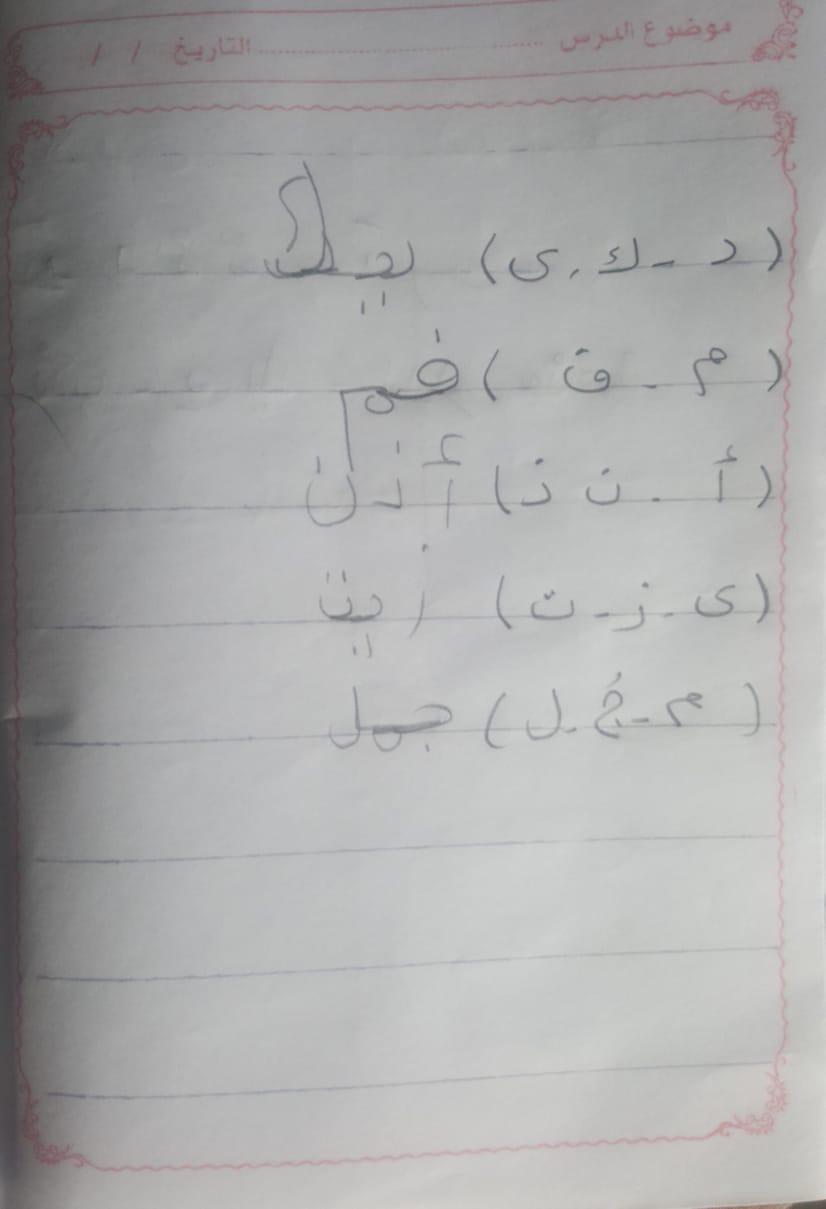 موضوع الدرس ........................ التاريخ / /
(د - ك . ى) ديك
(م . ف) فم
(أ . ن ذ) أذن
(ى - ز - ت) زيت
(م - ج . ل) جمل